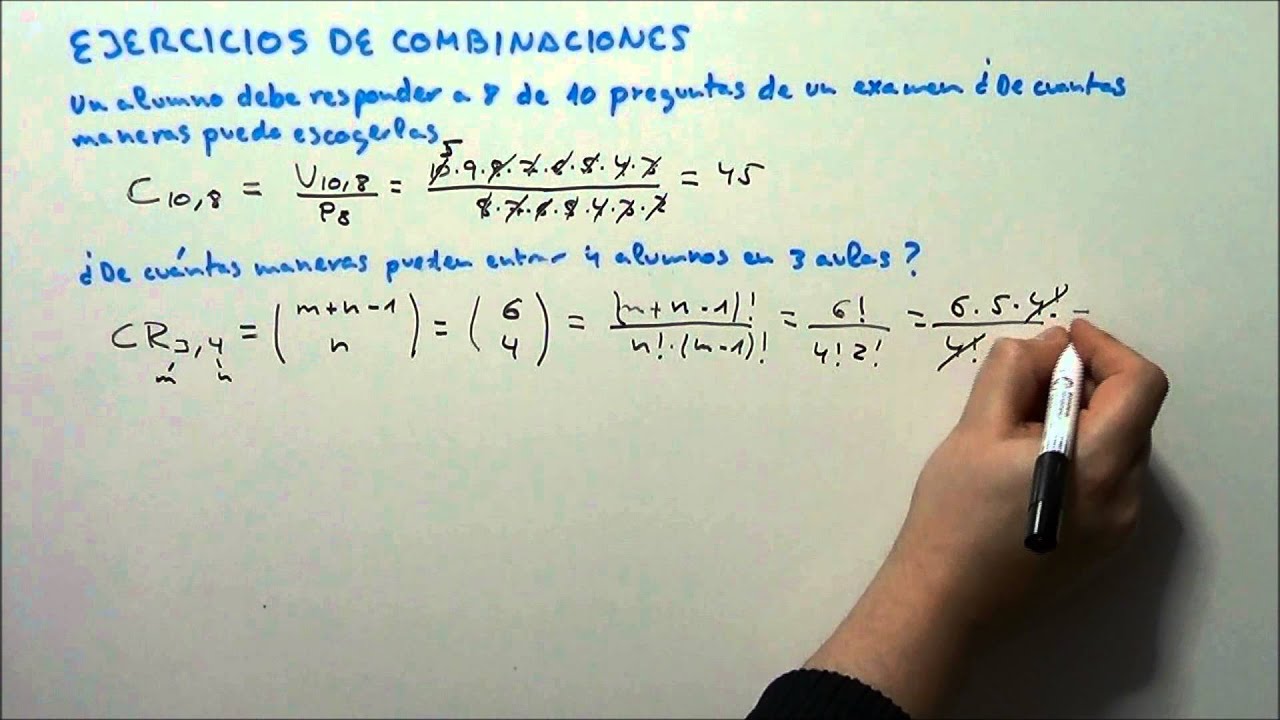 EJERCICIOS DE COMBINACIONES
Un alumno debe responder a 8 de 10 preguntas de un examen ¿De cuantas
maneras puede escogerlas
C10,8 = V10,8/P8 = 10·9·8·7·6·5·4·3/8·7·6·5·4·3·2 = 45
5
¿De cuántas maneras pueden entrar 4 alumnos en 3 aulas?
CR3,4 = (m+n-1 n) = (6 4) = (m+n-1)!/n!·(m-1)! = 6!/4!2! = 6·5·4!/4! =
m n